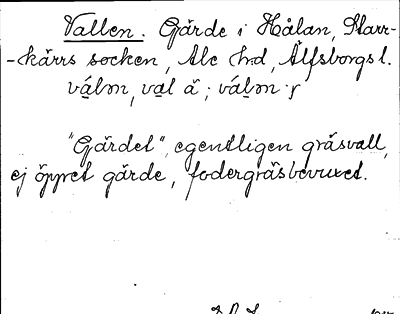 Vallen. Gärde i Hålan, Starr-
-kärrs socken, Ale hd, Älfsborgs l.
"Gärdet", egentligen gräsvall,
ej öppet gärde, fodergräsbevuxet.